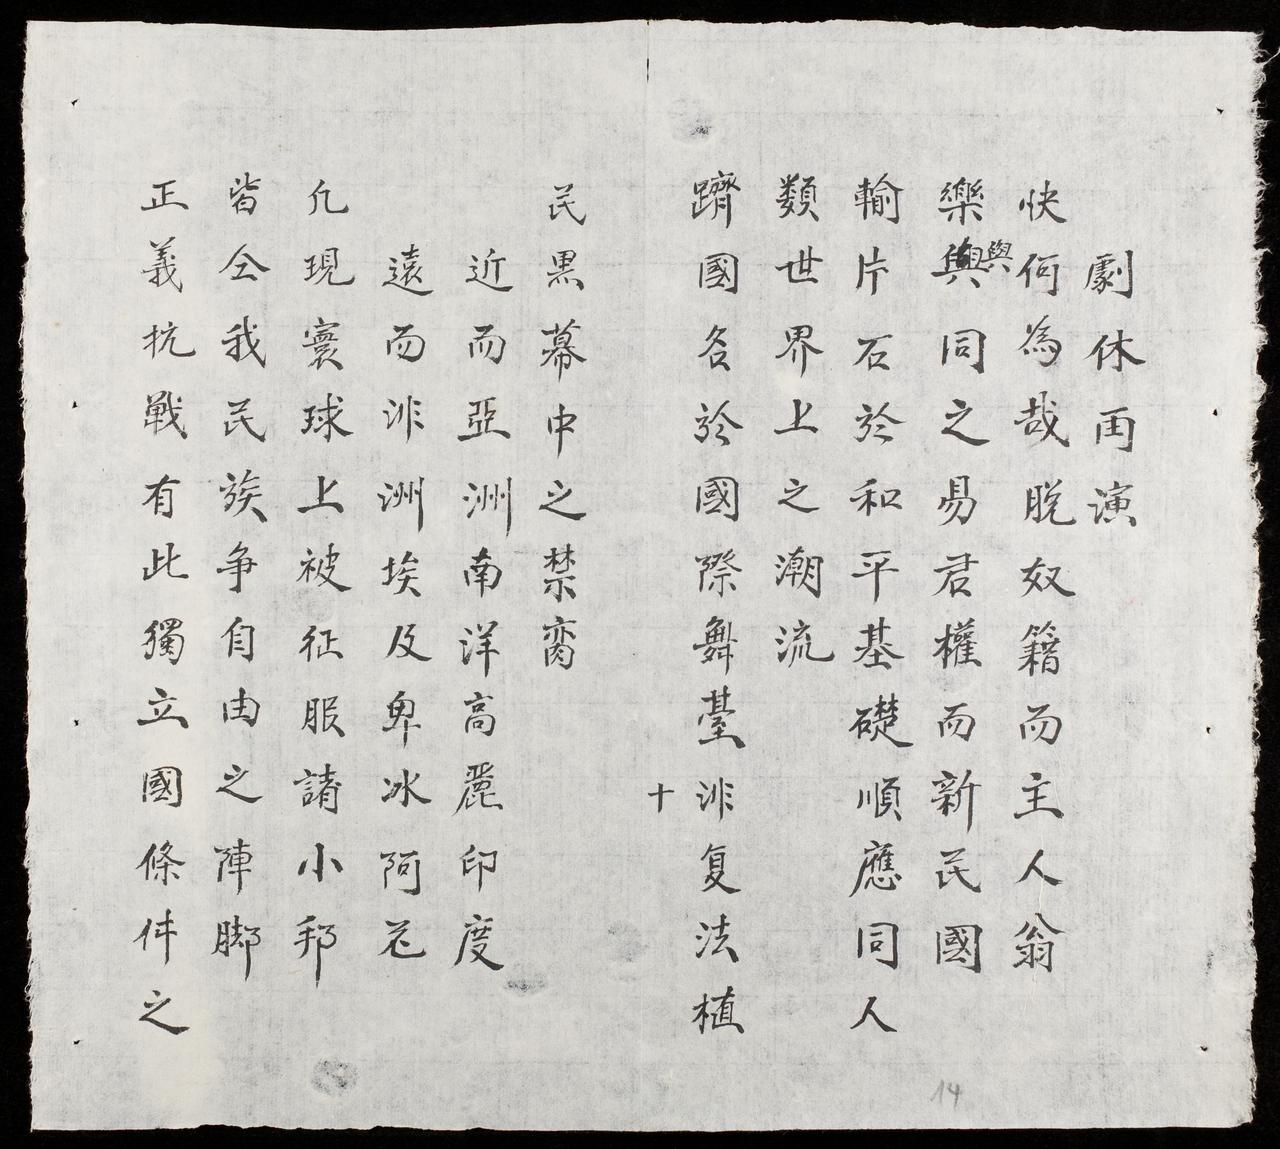 劇休再演
快何為哉脫奴籍而主人翁
樂與同之易君權而新民國
與
輸片石於和平基礎順應同人
類世界上之潮流
躋國名於國際舞臺非复法植
十
民黑幕中之禁臠
近而亞洲南洋高麗印度
遠而非洲埃及卑冰阿芯
凡現寰球上被征服諸小邦
皆仝我民族争自由之陣脚
正義抗戰有此獨立國條件之
14